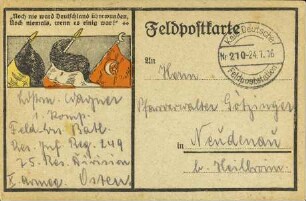 „Noch nie ward Deutschland überwunden,
Noch niemals, wenn es einig war!“
Lstm. Wagner
1. Komp.
Feld. Bat.
Res. Inf. Reg. 249
75. Res. Division
X. Armee. Osten
Feldpostkarte
Kais. Deutsche
Nr 210-24.1.16
Feldpoststation
An
Herrn
Pfarrverwalter Götzinger
in Neudenau
b. Heilbronn.